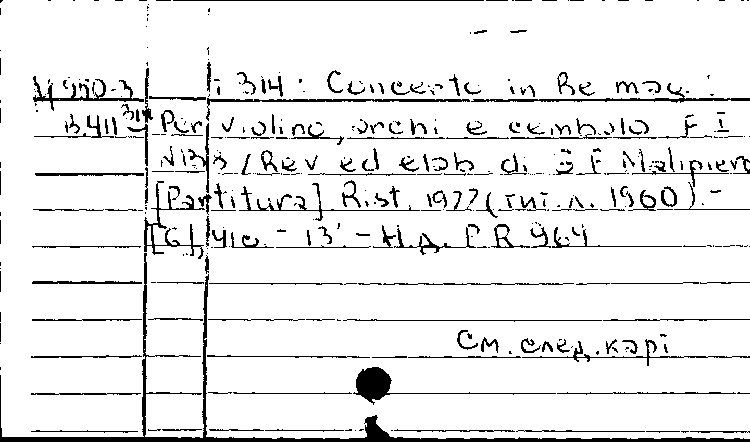 Ц 950-3 т 314 : Concerto in Re mag. :
В.411 314 Per violino, archi e cembalo F I
N133 / Rev ed elab. di G F Malipiero
[Partitura] Rist. 1977 (тит.л. 1960). -
[6], 41 с. - 13'. - Н.д. P R 964
См. след. карт